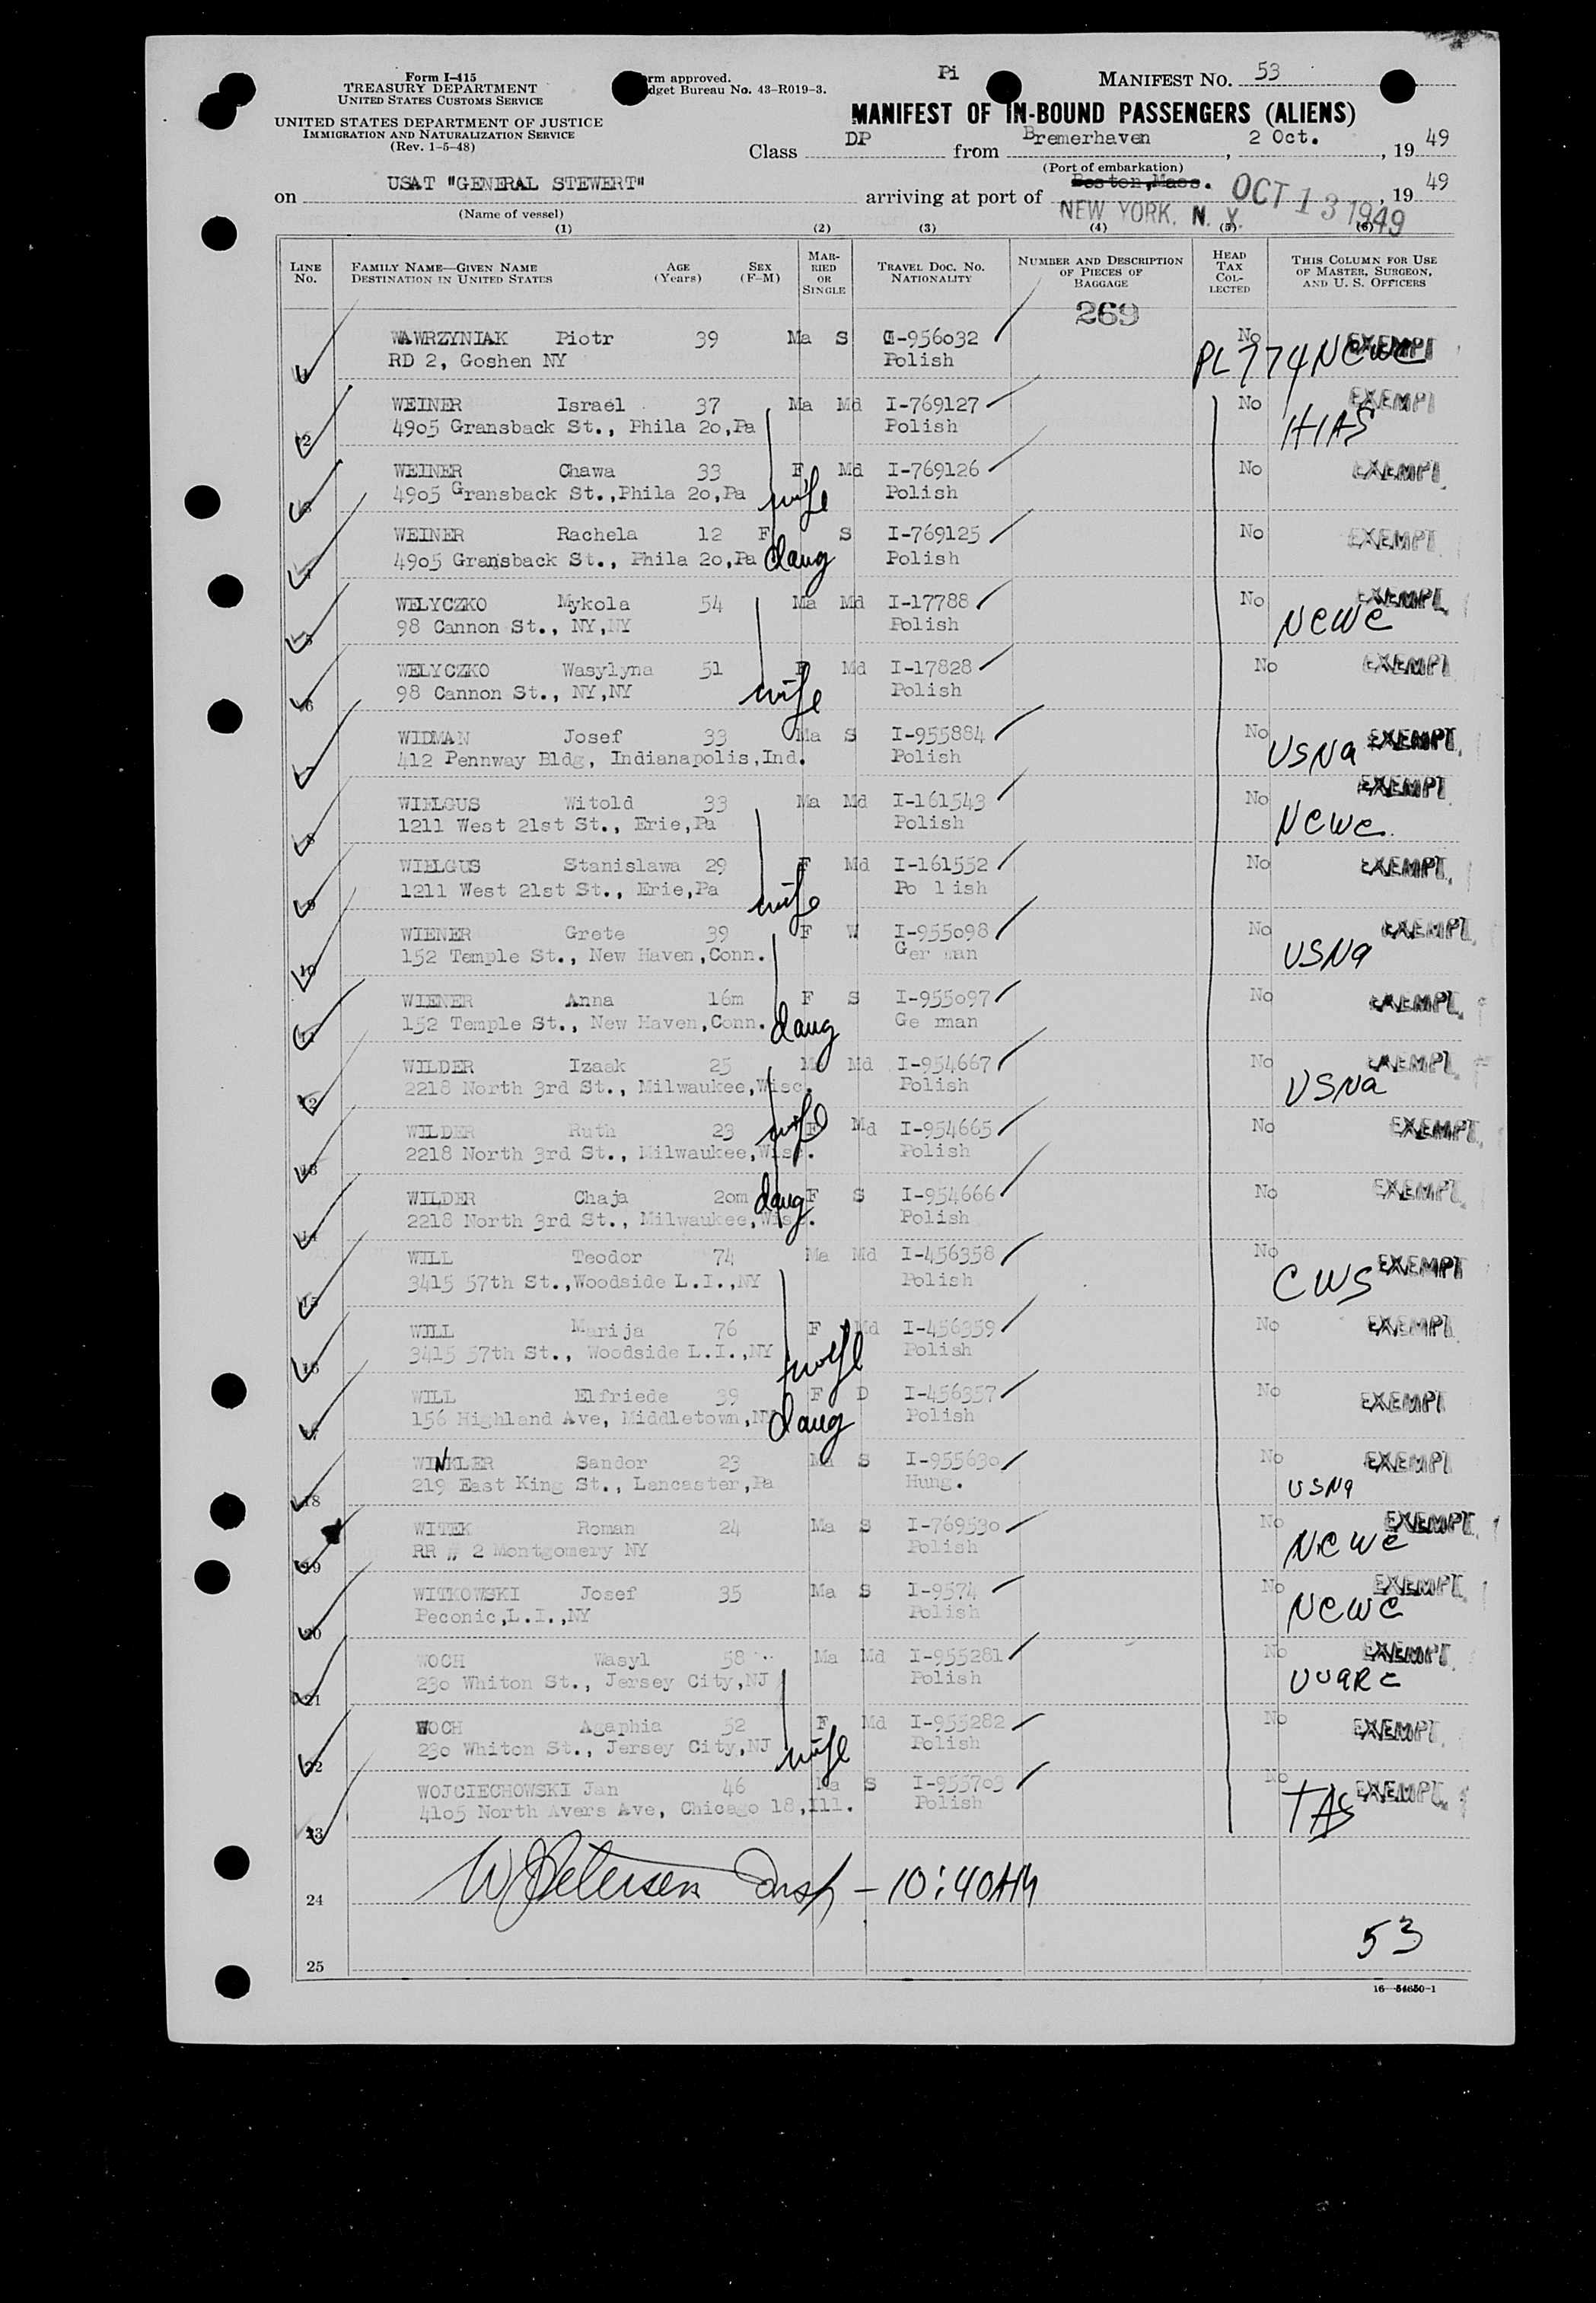 Form I-415
TREASURY DEPARTMENT
UNITED STATES CUSTOMS SERVICE
UNITED STATES DEPARTMENT OF JUSTICE
IMMIGRATION AND NATURALIZATION SERVICE
(Rev. 1-5-48)
rm approved.
dget Bureau No. 43-R019-3.
Pi
MANIFEST NO. 53
MANIFEST OF IN-BOUND PASSENGERS (ALIENS)
Class DP from Bremerhaven, 2 Oct., 19 49
(Port of embarkation)
on USAT "GENERAL STEWERT" arriving at port of Boston,Mass. , 19 49
(Name of vessel)
NEW YORK, N. Y. OCT 13 1949
(1) (2) (3) (4) (5) (6)
LINE No. FAMILY NAME—GIVEN NAME DESTINATION IN UNITED STATES AGE (Years) SEX (F-M) MARRIED OR SINGLE TRAVEL DOC. NO. NATIONALITY NUMBER AND DESCRIPTION OF PIECES OF BAGGAGE HEAD TAX COLLECTED THIS COLUMN FOR USE OF MASTER, SURGEON, AND U. S. OFFICERS
269
1 WAWRZYNIAK Piotr 39 Ma S I-956032 No EXEMPT
RD 2, Goshen NY Polish PL 774 NCWC
2 WEINER Israel 37 Ma Md I-769127 No EXEMPT
4905 Gransback St., Phila 20,Pa Polish HIAS
3 WEINER Chawa 33 F Md I-769126 No EXEMPT
4905 Gransback St.,Phila 20,Pa wife Polish
4 WEINER Rachela 12 F S I-769125 No EXEMPT
4905 Gransback St., Phila 20,Pa daug Polish
5 WELYCZKO Mykola 54 Ma Md I-17788 No EXEMPT
98 Cannon St., NY,NY Polish NCWC
6 WELYCZKO Wasylyna 51 F Md I-17828 No EXEMPT
98 Cannon St., NY,NY wife Polish
7 WIDMAN Josef 33 Ma S I-955884 No EXEMPT
412 Pennway Bldg, Indianapolis,Ind. Polish USNA
8 WIELGUS Witold 33 Ma Md I-161543 No EXEMPT
1211 West 21st St., Erie,Pa Polish NCWC
9 WIELGUS Stanislawa 29 F Md I-161552 No EXEMPT
1211 West 21st St., Erie,Pa wife Po lish
10 WIENER Grete 39 F W I-955098 No EXEMPT
152 Temple St., New Haven,Conn. Ger man USNA
11 WIENER Anna 16m F S I-955097 No EXEMPT
152 Temple St., New Haven,Conn. daug Ge rman
12 WILDER Izaak 25 Ma Md I-954667 No EXEMPT
2218 North 3rd St., Milwaukee,Wisc. Polish USNA
13 WILDER Ruth 23 wife F Md I-954665 No EXEMPT
2218 North 3rd St., Milwaukee,Wisc. Polish
14 WILDER Chaja 20m daug F S I-954666 No EXEMPT
2218 North 3rd St., Milwaukee,Wisc. Polish
15 WILL Teodor 74 Ma Md I-456358 No EXEMPT
3415 57th St.,Woodside L.I.,NY Polish CWS
16 WILL Marija 76 F Md I-456359 No EXEMPT
3415 57th St., Woodside L.I.,NY wife Polish
17 WILL Elfriede 39 F D I-456357 No EXEMPT
156 Highland Ave, Middletown,NY daug Polish
18 WINKLER Sandor 23 Ma S I-955630 No EXEMPT
219 East King St., Lancaster,Pa Hung. USNA
19 WITEK Roman 24 Ma S I-769530 No EXEMPT
RR # 2 Montgomery NY Polish NCWC
20 WITKOWSKI Josef 35 Ma S I-9574 No EXEMPT
Peconic,L.I.,NY Polish NCWC
21 WOCH Wasyl 58 Ma Md I-955281 No EXEMPT
230 Whiton St., Jersey City,NJ Polish UUARC
22 WOCH Agaphia 52 F Md I-955282 No EXEMPT
230 Whiton St., Jersey City,NJ wife Polish
23 WOJCIECHOWSKI Jan 46 Ma S I-953709 No EXEMPT
4105 North Avers Ave, Chicago 18,Ill. Polish TAS
24 W Petersen Insp - 10:40AM
53
25
16—54650-1